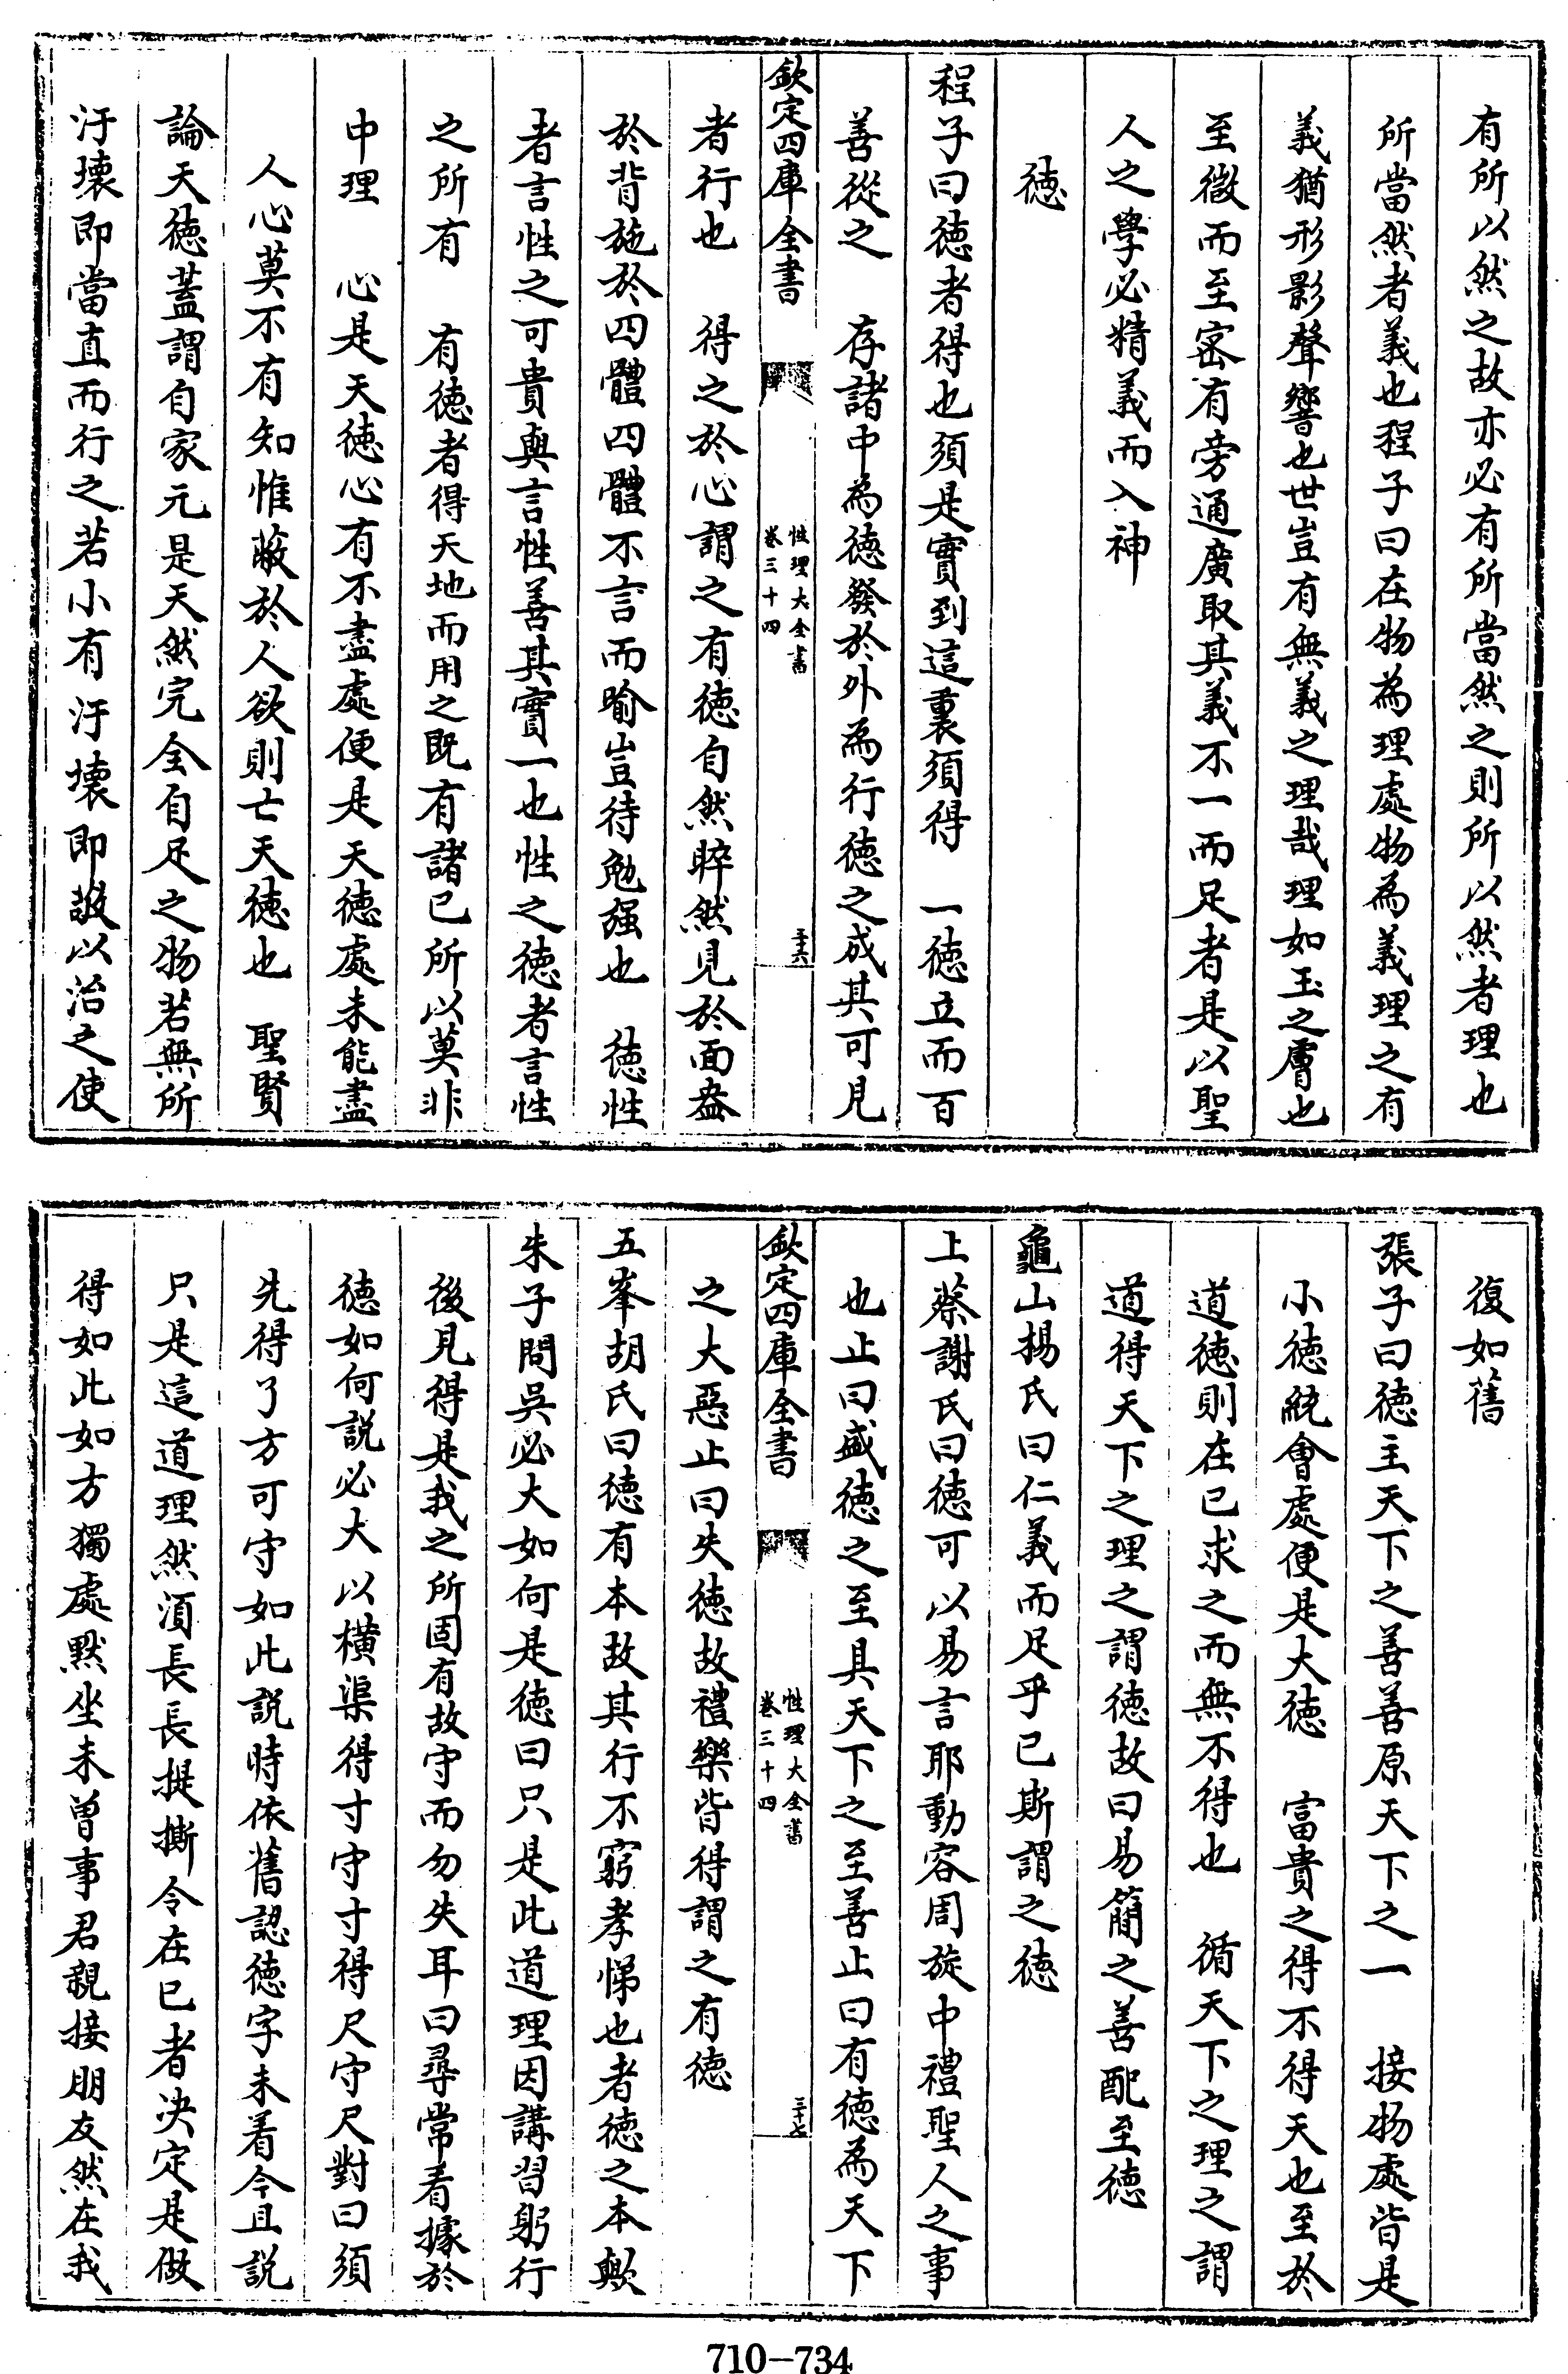 有所以然之故亦必有所當然之則所以然者理也
所當然者義也程子曰在物為理處物為義理之有
義猶形影聲響也世豈有無義之理哉理如玉之膚也
至微而至密有旁通廣取其義不一而足者是以聖
人之學必精義而入神
德
程子曰德者得也須是實到這裏須得　一德立而百
善從之　存諸中為德發於外為行德之成其可見
欽定四庫全書
性理大全書
卷三十四
三十六
者行也　得之於心謂之有德自然睟然見於面盎
於背施於四體四體不言而喻豈待勉强也　德性
者言性之可貴與言性善其實一也性之德者言性
之所有　有德者得天地而用之既有諸已所以莫非
中理　心是天德心有不盡處便是天德處未能盡
人心莫不有知惟蔽於人欲則亡天德也　聖賢
論天德蓋謂自家元是天然完全自足之物若無所
汙壞即當直而行之若小有汙壞即敬以治之使
復如舊
張子曰德主天下之善善原天下之一　接物處皆是
小德統會處便是大德　富貴之得不得天也至於
道德則在已求之而無不得也　循天下之理之謂
道得天下之理之謂德故曰易簡之善配至德
龜山楊氏曰仁義而足乎已斯謂之德
上蔡謝氏曰德可以易言耶動容周旋中禮聖人之事
也止曰盛德之至具天下之至善止曰有德為天下
欽定四庫全書
性理大全書
卷三十四
三十七
之大惡止曰失德故禮樂皆得謂之有德
五峯胡氏曰德有本故其行不窮孝悌也者德之本歟
朱子問吳必大如何是德曰只是此道理因講習躬行
後見得是我之所固有故守而勿失耳曰尋常看據於
德如何説必大以横渠得寸守寸得尺守尺對曰須
先得了方可守如此説時依舊認德字未着今且説
只是這道理然須長長提撕令在已者決定是做
得如此如方獨處默坐未曾事君親接朋友然在我
710-734